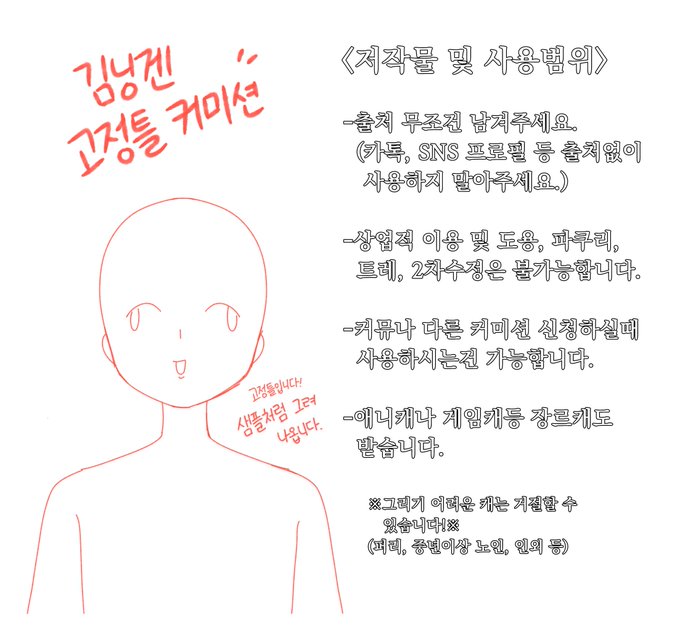 김닝겐
고정틀 커미션
고정틀입니다!
샘플처럼 그려
나옵니다.
<저작물 및 사용범위>
-출처 무조건 남겨주세요.
(카톡, SNS 프로필 등 출처없이
사용하지 말아주세요.)
-상업적 이용 및 도용, 파쿠리,
트레, 2차수정은 불가능합니다.
-커뮤나 다른 커미션 신청하실때
사용하시는건 가능합니다.
-애니캐나 게임캐등 장르캐도
받습니다.
※그리기 어려운 캐는 거절할 수
있습니다!※
(퍼리, 중년이상 노인, 인외 등)